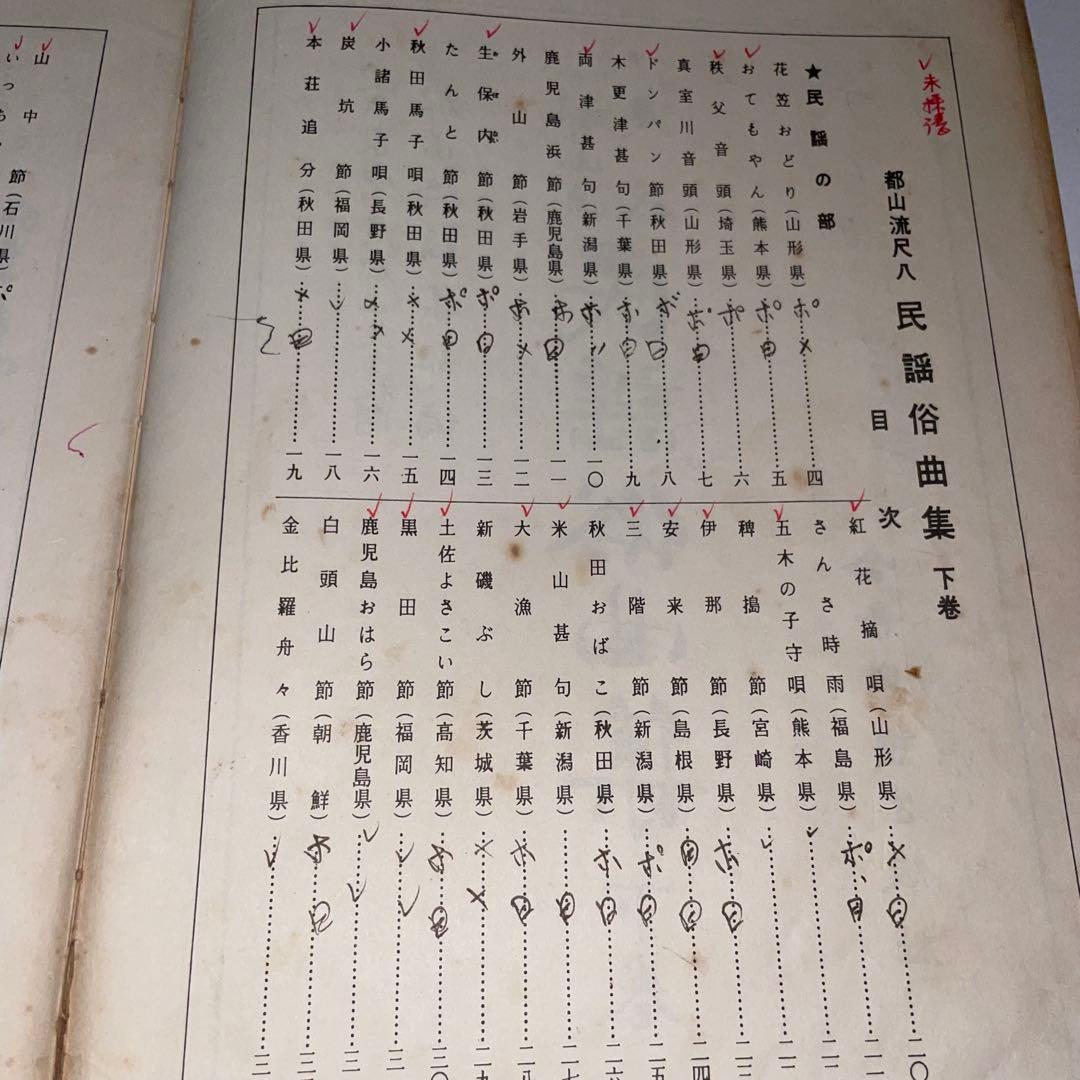 未採譜
都山流尺八 民謡俗曲集 下巻
目次
★民謡の部
花笠おどり(山形県)………四
おてもやん(熊本県)………五
秩父音頭(埼玉県)………六
真室川音頭(山形県)………七
ドンパン節(秋田県)………八
木更津甚句(千葉県)………九
両津甚句(新潟県)………一〇
鹿児島浜節(鹿児島県)………一一
外山節(岩手県)………一二
生保内節(秋田県)………一三
たんと節(秋田県)………一四
秋田馬子唄(秋田県)………一五
小諸馬子唄(長野県)………一六
炭坑節(福岡県)………一八
本荘追分(秋田県)………一九
紅花摘唄(山形県)………二〇
さんさ時雨(福島県)………二一
五木の子守唄(熊本県)………
稗搗節(宮崎県)………
伊那節(長野県)………
安来節(島根県)………二四
三階節(新潟県)………二五
秋田おばこ(秋田県)………二六
米山甚句(新潟県)………二七
大漁節(千葉県)………二八
新磯ぶし(茨城県)………二九
土佐よさこい節(高知県)………三〇
黒田節(福岡県)………
鹿児島おはら節(鹿児島県)………
白頭山節(朝鮮)………
金比羅舟々(香川県)………
山中節(石川県)